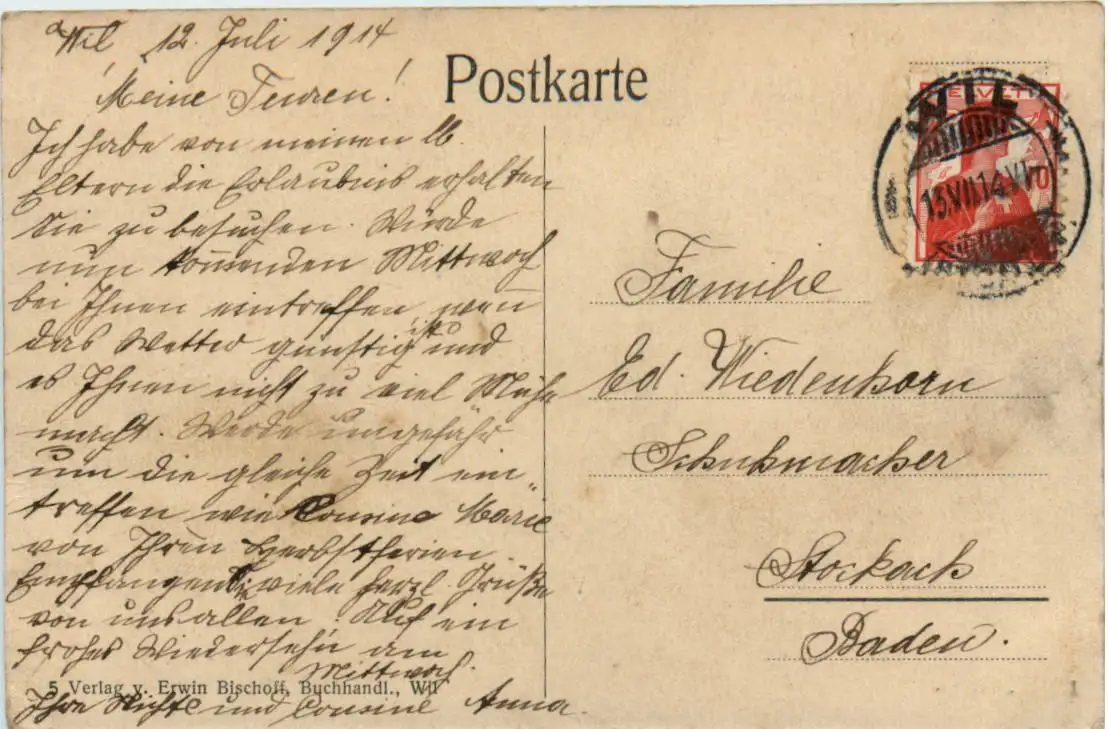 Wil, 12. Juli 1914
Meine Teuren!
Ich habe von meinen lb.
Eltern die Erlaubnis erhalten
Sie zu besuchen. Würde
nun kommenden Mittwoch
bei Ihnen eintreffen, wen̄
das Wetter günstig ist und
es Ihnen nicht zu viel Mühe
macht. Werde ungefähr
um die gleiche Zeit ein
treffen wie Cousine Marie
von Ihren Herbstferien.
Empfangen Sie viele herzl. Grüße
von uns allen! Auf ein
frohes Wiedersehn am
Mittwoch.
Ihre Nichte und Cousine Anna.
Postkarte
HELVETIA
WIL
13.VII.14.VI
Familie
Ed. Wiedenhorn
Schuhmacher
Stockach
Baden.
5 Verlag v. Erwin Bischoff, Buchhandl., Wil
1